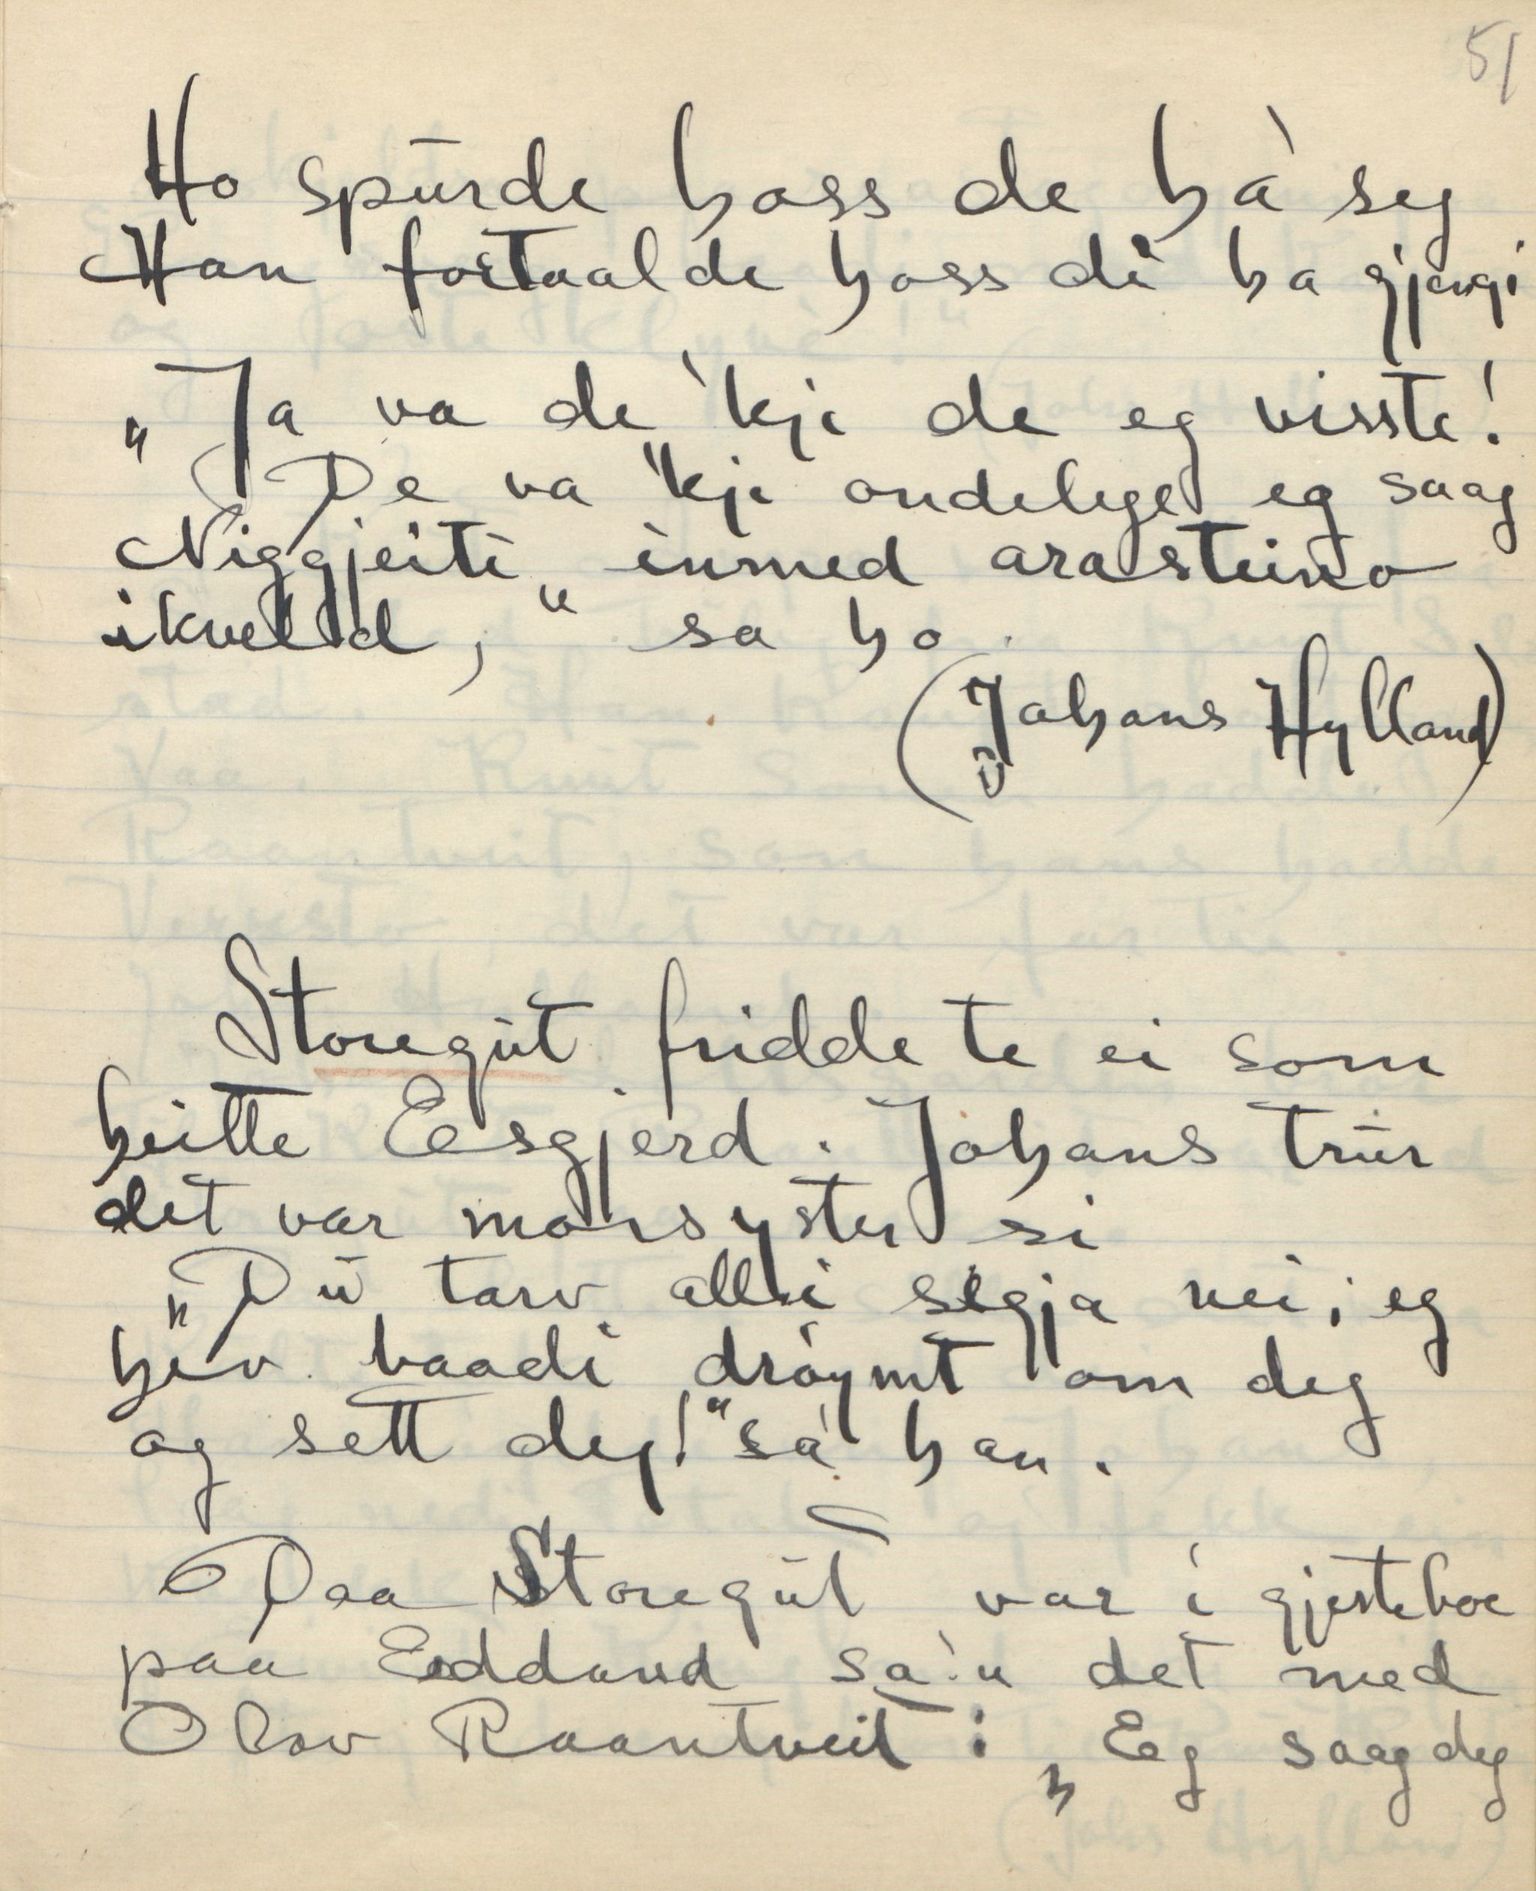 51
Ho spurde hoss de ha' seg
Han fortaalde hoss di ha gjengi
"Ja va de 'kje de eg visste!
De va 'kje ondelege eg saag
Niggjeiti innmed arasteino
ikveld," sa ho.
(Johans Hylland)
Storegut fridde te ei som
heitte Eesgjerd. Johans trur
det var morsyster si
"Du tarv alli segja nei; eg
hev baadi drøymt om deg
og sett deg!" sa' han.
Daa Storegut var i gjesteboe
paa Eddand sa'n det med
Olav Raantveit: "Eg saag deg